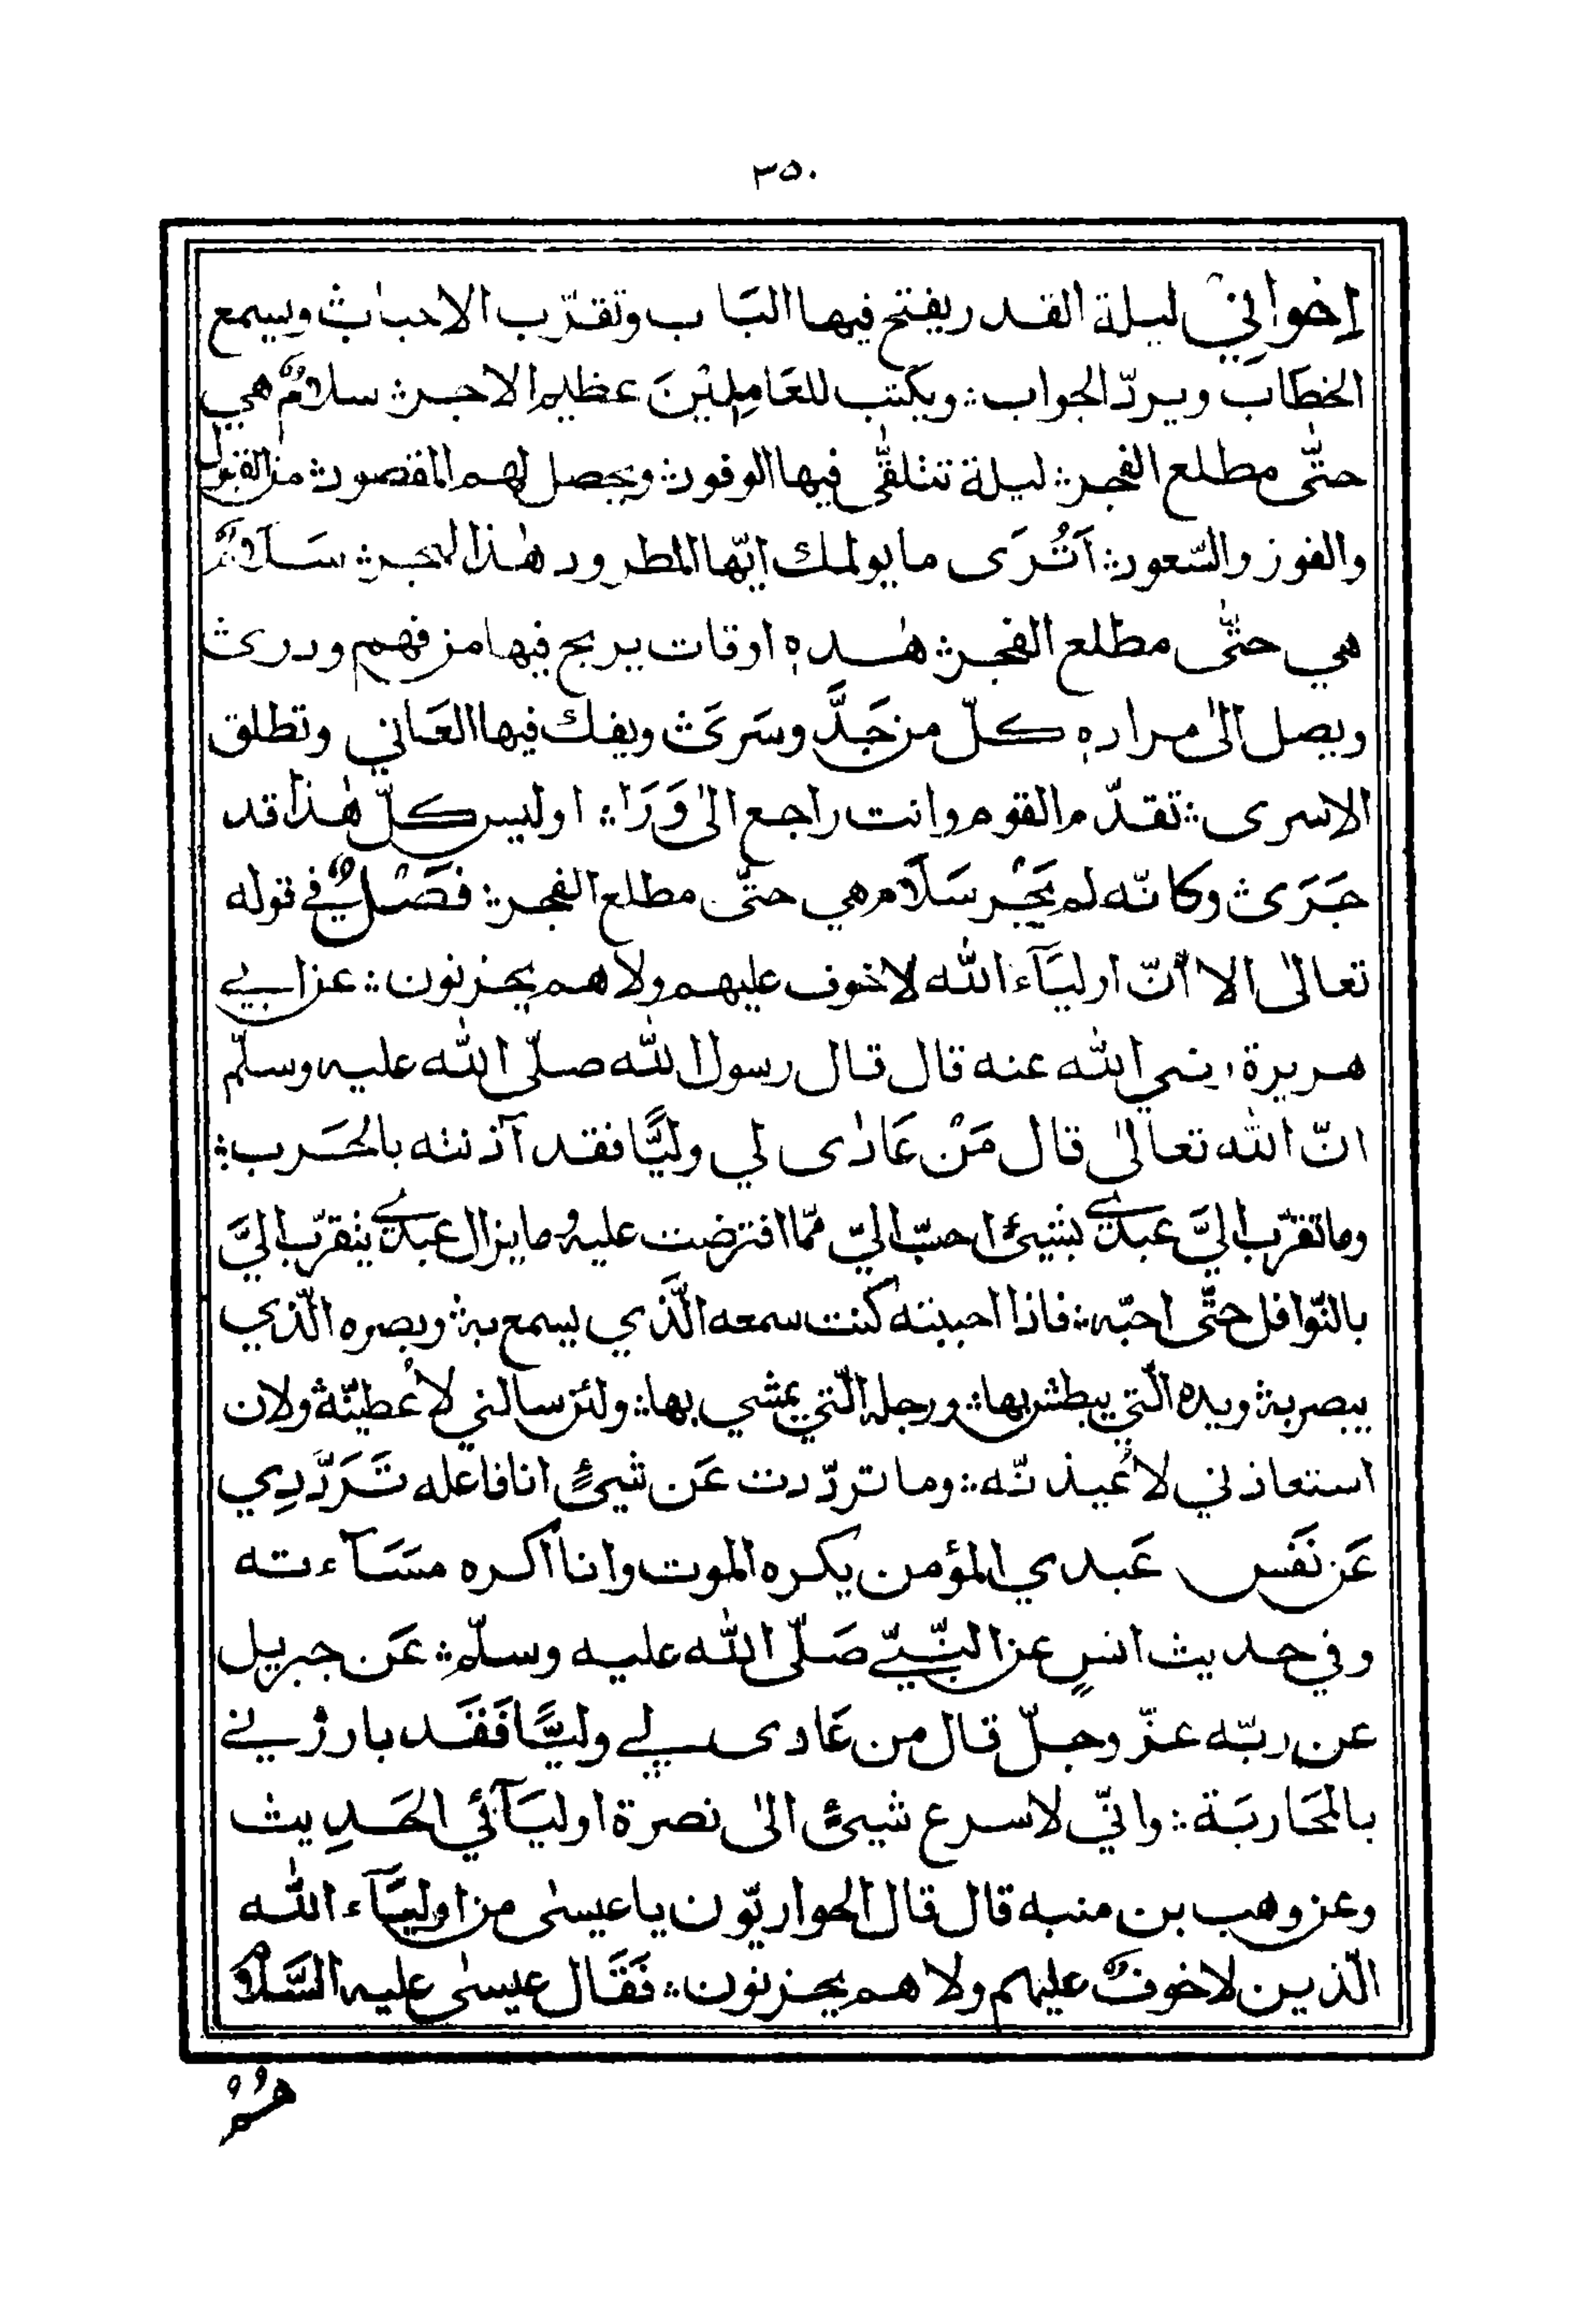 ٣٥٠
إخواني ليلة القدر يفتح فيها البَاب وتقرّب الاحباب ؞ ويسمع
الخطَابَ ويردّ الجواب ؞ ويكتب للعَامِلِيْنَ عظيم الاجر ؞ سلامٌ هي
حتّٰى مطلع الفجر ؞ ليلة تتلقّٰى فيها الوفود ؞ ويحصل لهم المقصود ؞ من القبول
والفوز والسّعود ؞ اَتُرَى ما يولمك ايّها المطرود هٰذا الهجر ؞ سَلَامٌ
هي حتّٰى مطلع الفجر ؞ هٰذه اوقات يربح فيها من فهم ودرى ؞
ويصل الىٰ مراده كلّ من جَدَّ وسَرَىٰ ؞ ويفك فيها العَاني وتطلق
الاسرى ؞ تقدّم القوم وانت راجع الىٰ وَرَا ؞ اوليس كلّ هٰذا قد
جَرَىٰ ؞ وكانّه لم يَجْر سَلَام هي حتّٰى مطلع الفجر ؞ فَصْلٌ في قوله
تعالىٰ الا أنّ اوليَآء الله لا خوف عليهم ولا هم يحزنون ؞ عن ابي
هريرة رضي الله عنه قال قال رسول الله صلّى الله عليه وسلّم
انّ الله تعالىٰ قال مَنْ عَادٰى لي وليًّا فقد آذنته بالحَرب ؞
وما تقرّب اليَّ عبدي بشيئ احبّ اليّ ممّا افترضت عليه وما يزال عبدي يتقرّب اليَّ
بالنّوافل حتّٰى احبّه ؞ فاذا احببته كنت سمعه الَّذي يسمع به ؞ وبصره الّذي
يبصر به ؞ ويده الّتي يبطش بها ؞ ورجله الّتي يمشي بها ؞ ولئن سالني لأعطينّه ولان
استعاذني لأعيذنّه ؞ وما تردّدت عَن شيئٍ انا فاعله تَرَدُّدِي
عَن نَفَس عَبدي المؤمن يكره الموت وانا اكره مسَآءته
وفي حديث انسٍ عن النّبيّ صَلّى الله عليه وسلّم ؞ عَن جبريل
عن ربّه عزّ وجلّ قال من عَادى لي وليًّا فَقَد بارزني
بالمحَاربَة ؞ وانّي لاسرع شيئ الىٰ نصرة اوليَآئي الحَدِيث
وعن وهب بن منبه قال قال الحواريّون يا عيسٰى من اوليَآء الله
الّذين لا خوفٌ عليهم ولا هم يحزنون ؞ فَقَال عيسٰى عليه السَّلام
هُمُ